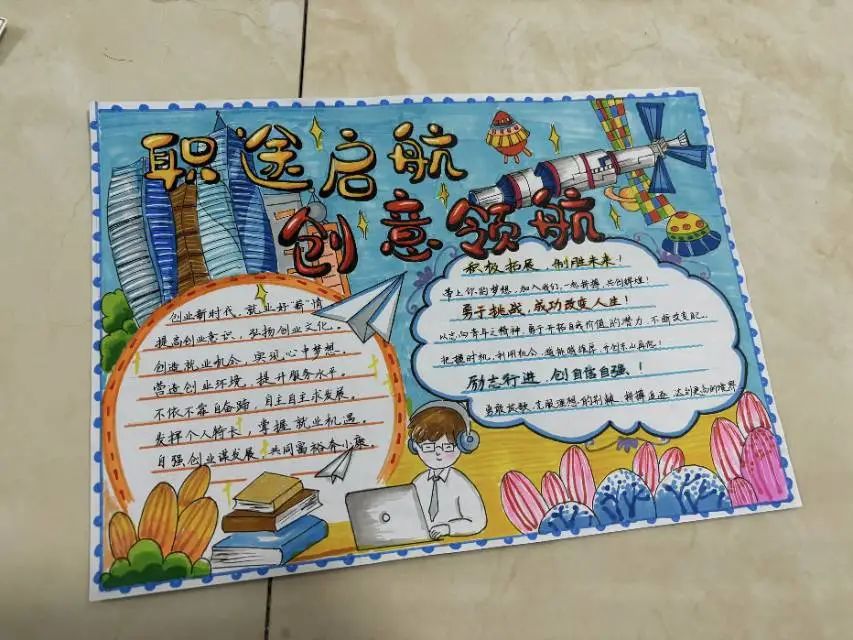 职途启航
创意领航
创业新时代，就业好"薪"情
提高创业意识，弘扬创业文化。
创造就业机会，实现心中梦想。
营造创业环境，提升服务水平。
不依不靠自奋蹄，自主自主求发展。
发挥个人特长，掌握就业机遇。
自强创业谋发展，共同富裕奔小康
积极拓展，制胜未来！
带上你的梦想，加入我们，一起拼搏，共创辉煌！
勇于挑战，成功改变人生！
以志向青年之精神，勇于开拓自我价值的潜力，不断改变
把握时机，利用机会，
励志行进，创自信自强！
勇敢放歌，克服理想的荆棘，拼搏直追，达到更高的境界